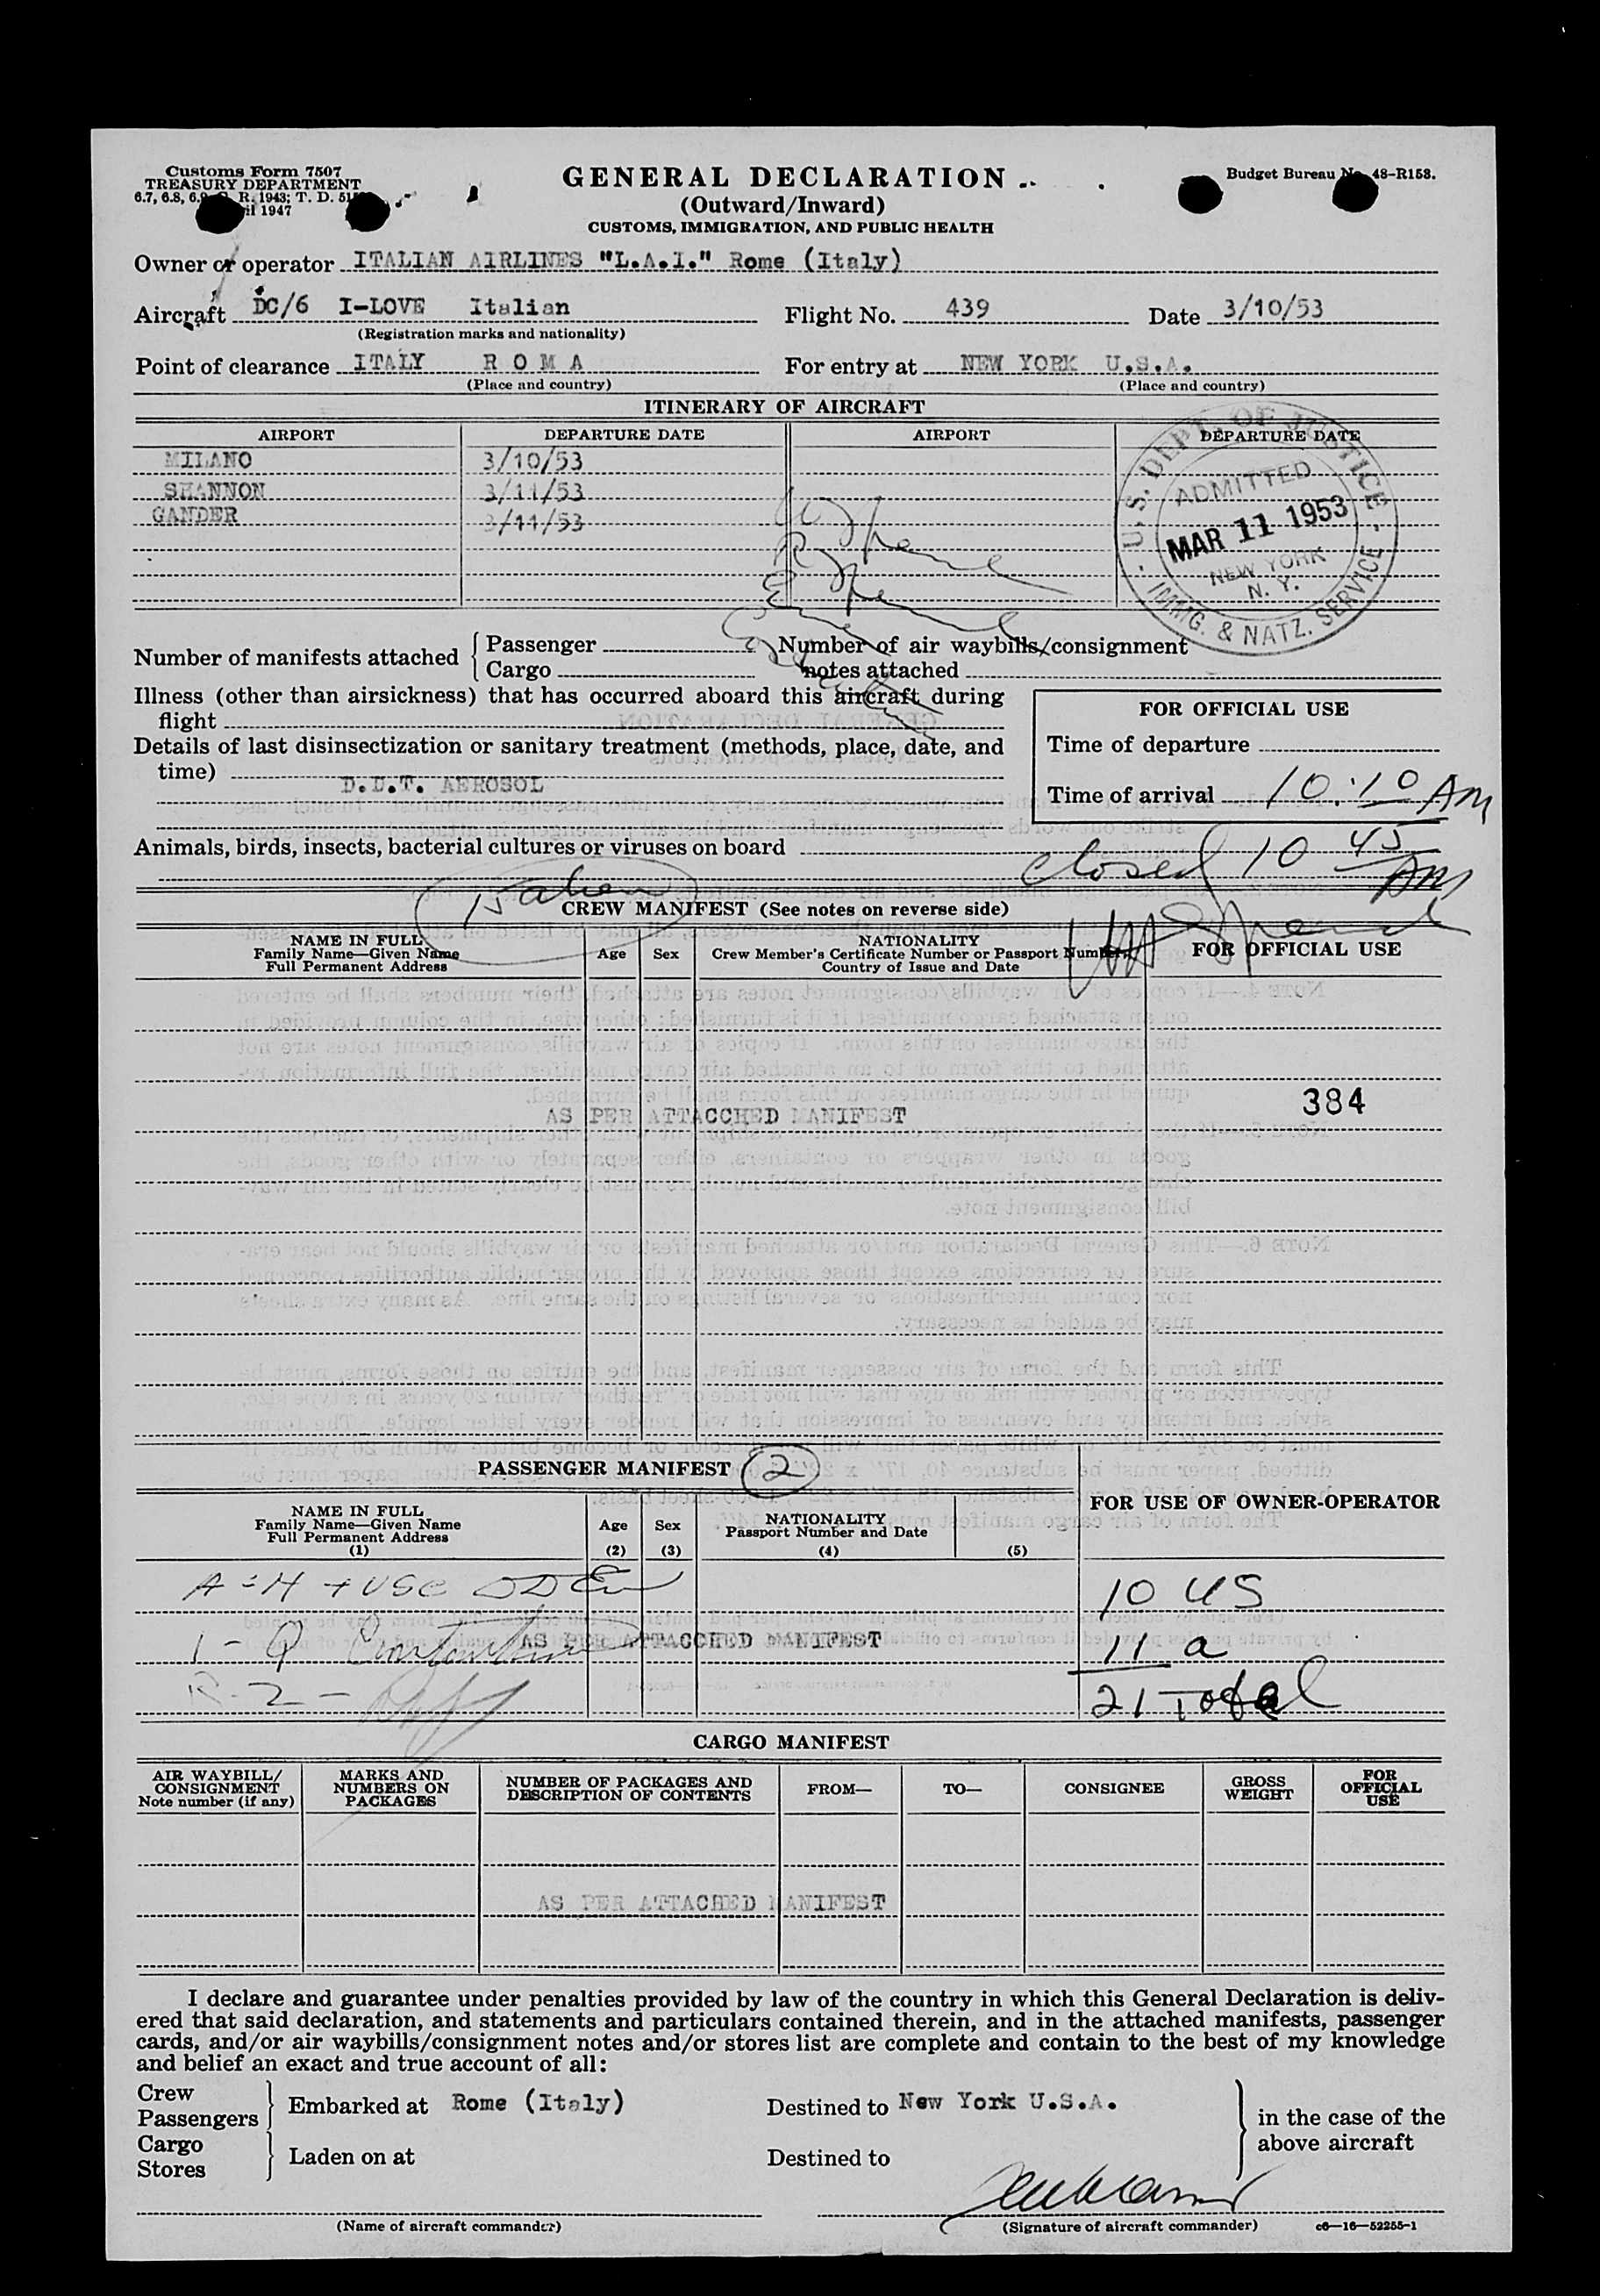 Customs Form 7507
TREASURY DEPARTMENT
6.7, 6.8, R. 1943; T. D.
1947
GENERAL DECLARATION
(Outward/Inward)
CUSTOMS, IMMIGRATION, AND PUBLIC HEALTH
Budget Bureau No. 48-R158.
Owner or operator ITALIAN AIRLINES "L.A.I." Rome (Italy)
Aircraft DC/6 I-LOVE Italian Flight No. 439 Date 3/10/53
(Registration marks and nationality)
Point of clearance ITALY R O M A For entry at NEW YORK U.S.A.
(Place and country) (Place and country)
ITINERARY OF AIRCRAFT
AIRPORT DEPARTURE DATE AIRPORT DEPARTURE DATE
MILANO 3/10/53
SHANNON 3/11/53
GANDER 3/11/53
U.S. DEPT. OF JUSTICE
ADMITTED
MAR 11 1953
NEW YORK
N. Y.
IMMIG. & NATZ. SERVICE
Number of manifests attached { Passenger
Cargo
Number of air waybills/consignment
notes attached
Illness (other than airsickness) that has occurred aboard this aircraft during
flight
Details of last disinsectization or sanitary treatment (methods, place, date, and
time)
D.D.T. AEROSOL
FOR OFFICIAL USE
Time of departure
Time of arrival 10:10 AM
Animals, birds, insects, bacterial cultures or viruses on board
closed 10 45 AM
CREW MANIFEST (See notes on reverse side)
NAME IN FULL
Family Name—Given Name
Full Permanent Address
Age
Sex
NATIONALITY
Crew Member's Certificate Number or Passport Number
Country of Issue and Date
FOR OFFICIAL USE
384
AS PER ATTACCHED MANIFEST
PASSENGER MANIFEST 2
NAME IN FULL
Family Name—Given Name
Full Permanent Address
(1)
Age
(2)
Sex
(3)
NATIONALITY
Passport Number and Date
(4)
(5)
FOR USE OF OWNER-OPERATOR
10 US
AS PER ATTACCHED MANIFEST
11 a
21 Total
CARGO MANIFEST
AIR WAYBILL/
CONSIGNMENT
Note number (if any)
MARKS AND
NUMBERS ON
PACKAGES
NUMBER OF PACKAGES AND
DESCRIPTION OF CONTENTS
FROM—
TO—
CONSIGNEE
GROSS
WEIGHT
FOR
OFFICIAL
USE
AS PER ATTACHED MANIFEST
I declare and guarantee under penalties provided by law of the country in which this General Declaration is deliv-
ered that said declaration, and statements and particulars contained therein, and in the attached manifests, passenger
cards, and/or air waybills/consignment notes and/or stores list are complete and contain to the best of my knowledge
and belief an exact and true account of all:
Crew
Passengers
Embarked at Rome (Italy) Destined to New York U.S.A.
Cargo
Stores
Laden on at Destined to
in the case of the
above aircraft
(Name of aircraft commander) (Signature of aircraft commander) c6—16—52255-1